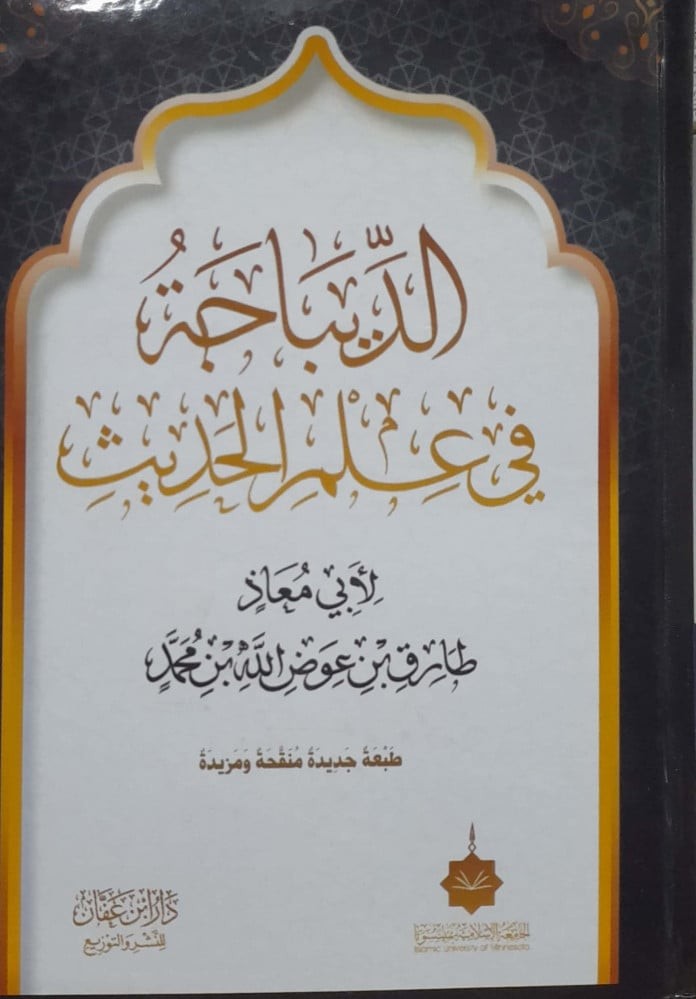 الدِّيبَاجَةُ
فِي عِلْمِ الحَدِيثِ
لِأَبِي مُعَاذٍ
طَارِقِ بْنِ عِوَضِ اللَّهِ بْنِ مُحَمَّدٍ
طَبْعَةٌ جَدِيدَةٌ مُنَقَّحَةٌ وَمَزِيدَةٌ
الجامعة الإسلامية بمنيسوتا
Islamic University of Minnesota
دَارُ ابْنِ عَفَّانَ
لِلنَّشْرِ وَالتَّوْزِيعِ